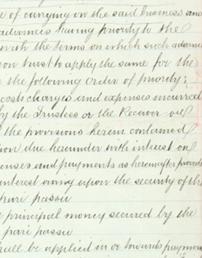 of carrying on the said business and
advances having priority to the
with the terms on which such advance
on trust to apply the same for the
the following order of priority:
costs charges and expenses incurred
by the Trustees or the Receiver
the provisions herein contained
due hereunder with interest on
and payments as hereinafter provided
interest owing upon the security of the
pari passu
principal money secured by the
pari passu
shall be applied in or towards payment